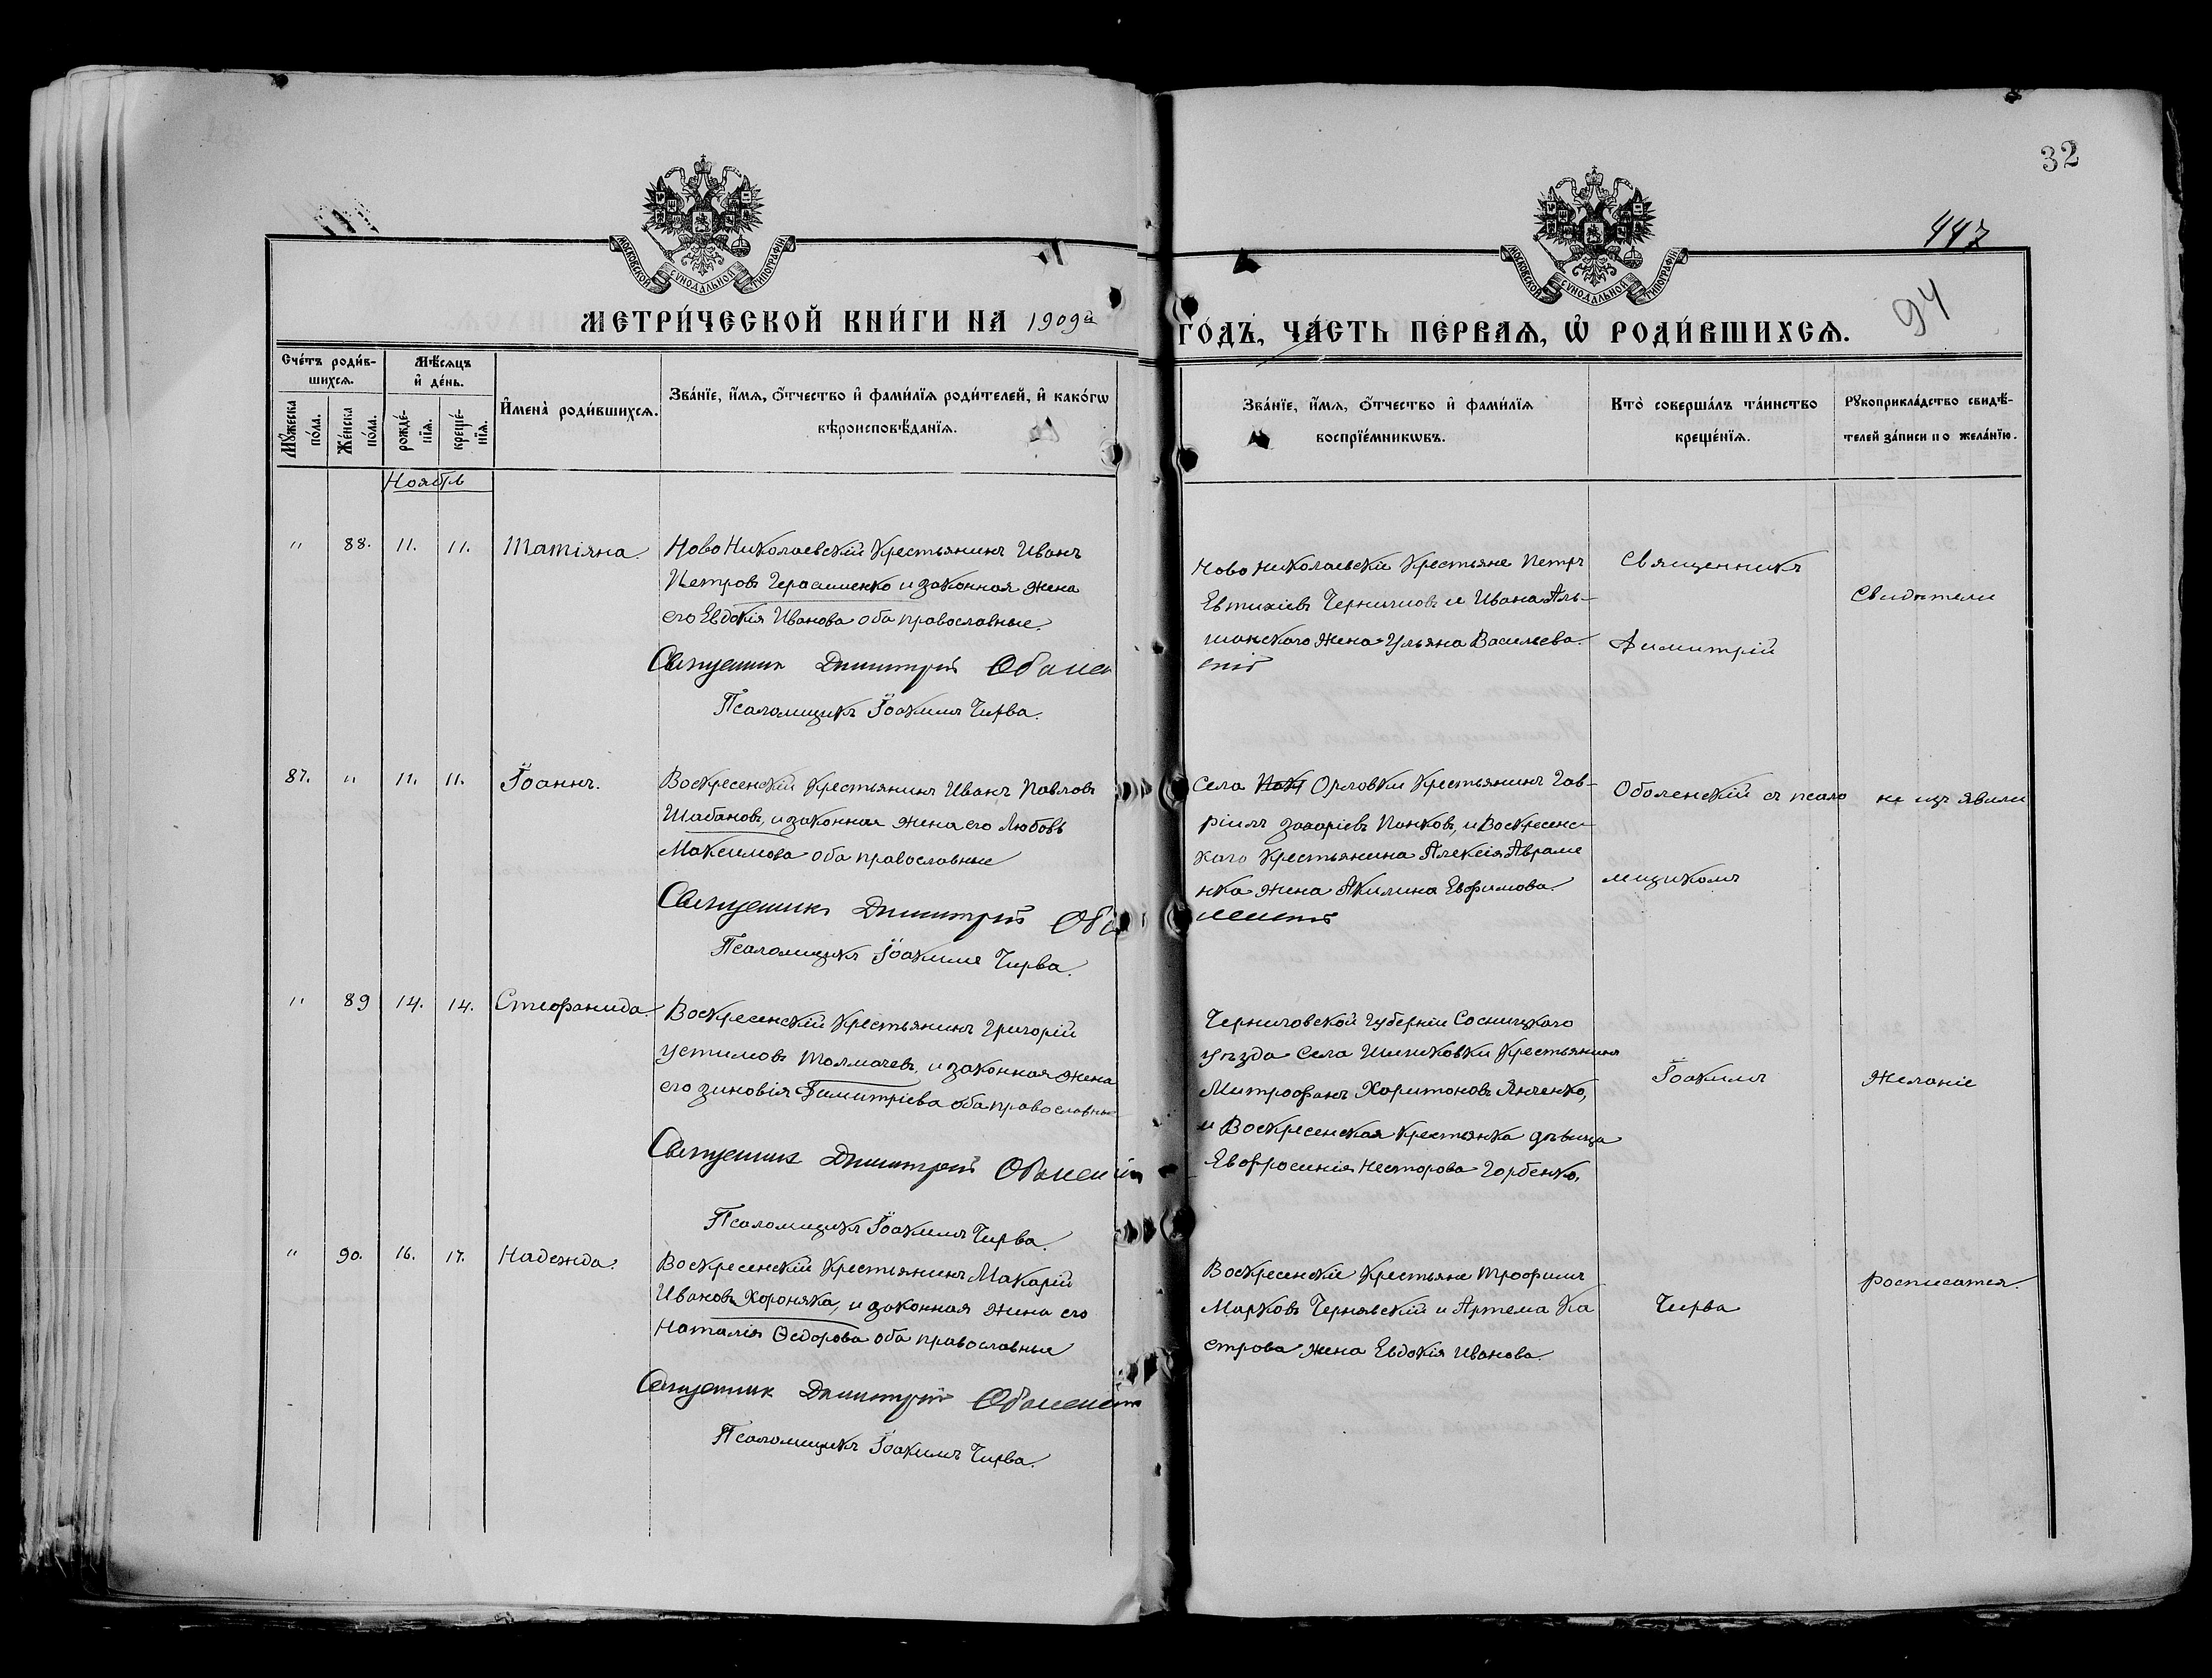 32
447
94
МОСКОВСКОЙ СУНОДАЛЬНОЙ ТИПОГРАФІИ
МОСКОВСКОЙ СУНОДАЛЬНОЙ ТИПОГРАФІИ
МЕТРИ́ЧЕСКОЙ КНИ́ГИ НА 1909й
ГО́ДЪ, ЧА́СТЬ ПЕ́РВАѦ, Ѿ РОДИ́ВШИХСѦ.
Сче́тъ роди́в-
шихсѧ.
Мѣ́сѧцъ
и҆ де́нь.
Мꙋ́жеска
по́ла.
Же́нска
по́ла.
рожде́-
нїѧ.
креще́-
нїѧ.
И҆мена̀ роди́вшихсѧ.
Зва́нїе, и҆́мѧ, ѻ҆́тчество и҆ фами́лїѧ роди́телей, и҆ како́гѡ
вѣроисповѣ́данїѧ.
Зва́нїе, и҆́мѧ, ѻ҆́тчество и҆ фами́лїѧ
воспрїе́мникѡвъ.
Кто̀ соверша́лъ та́инство
креще́нїѧ.
Рꙋкоприкла́дство свидѣ́-
телей за́писи по жела́нїю.
Ноябрь
" 88. 11. 11. Татіяна.
НовоНиколаевскій Крестьянинъ Иванъ
Петровъ Герасименко и законная жена
его Евдокія Иванова оба православные.
Священник Димитрій Оболен
скій
Псаломщикъ Іоакимъ Чирва.
Ново Николаевскіе Крестьяне Петръ
Евтихіевъ Черничновъ и Ивана Аль-
шанскаго жена Ульяна Васильева.
Священникъ
Димитрій
Свидетели
87. " 11. 11. Іоаннъ.
Воскресенскій Крестьянинъ Иванъ Павловъ
Шабановъ, и законная жена его Любовь
Максимова оба православные
Священник Димитрій Обо
ленскій
Псаломщикъ Іоакимъ Чирва.
Села Орловки Крестьянинъ Гав-
ріилъ Захаріевъ Панковъ, и Воскресенс-
каго Крестьянина Алексія Авраме
нка жена Акилина Евфимова.
Оболенскій съ псало
мщикомъ
не изъявили
" 89 14. 14. Стефанида.
Воскресенскій Крестьянинъ Григорій
Устимовъ Толмачевъ, и законная жена
его Зиновія Димитріева оба православные
Священник Димитрій Оболенскій
Псаломщикъ Іоакимъ Чирва.
Черниговской Губерніи Сосницкаго
уѣзда Села Шишковки Крестьянинъ
Митрофанъ Харитоновъ Янченко,
и Воскресенская Крестьянка дѣвица
Евфросинія Несторова Горбенко.
Іоакимъ
Желаніе
" 90. 16. 17. Надежда.
Воскресенскій Крестьянинъ Макарій
Ивановъ Хороняка, и законная жена его
Наталія Ѳедорова оба православные
Священник Димитрій Оболенскій
Псаломщикъ Іоакимъ Чирва.
Воскресенскіе Крестьяне Трофимъ
Марковъ Чернявскій и Артема Ка
строва жена Евдокія Иванова.
Чирва
росписатся.